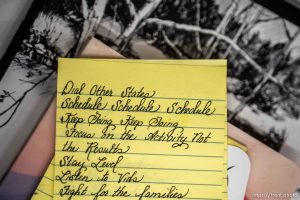 Dial Other States
Schedule Schedule Schedule
Keep Going Keep Going
Focus on the Activity Not
the Results
Stay Level
Listen to Vids
Fight for the families